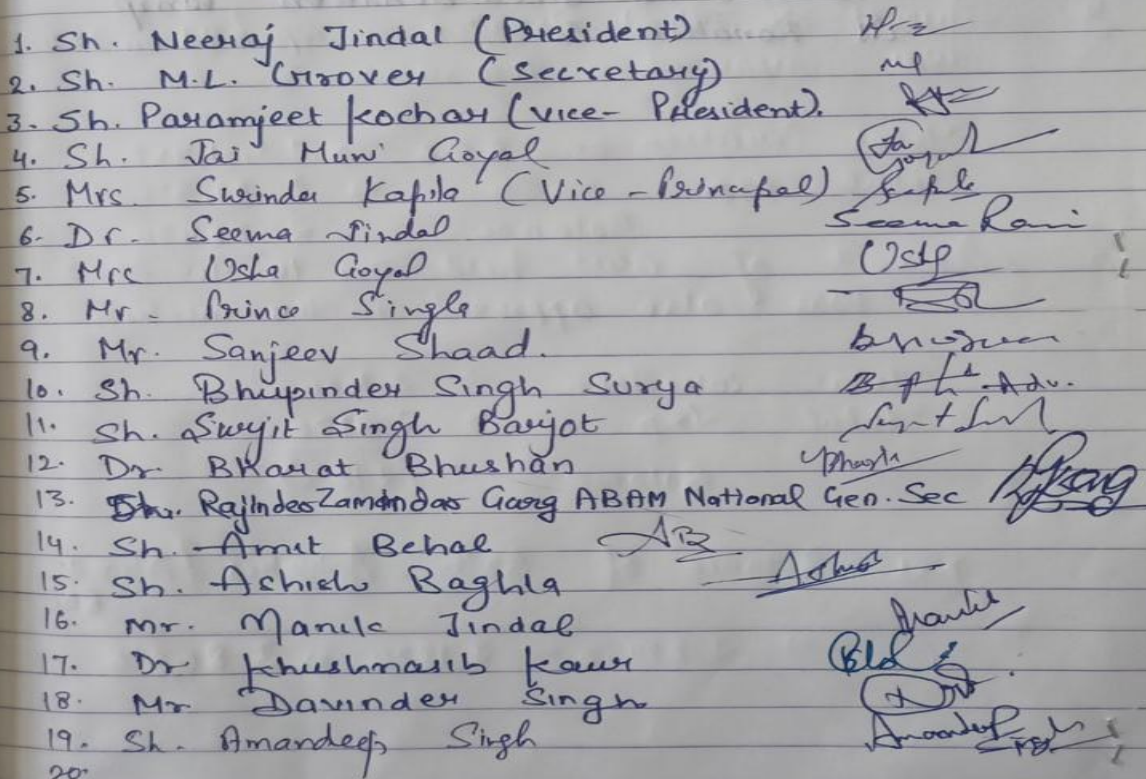 1. Sh. Neeraj Jindal (President)
2. Sh. M.L. Grover (Secretary)
3. Sh. Paramjeet Kochar (Vice-President).
4. Sh. Jai Muni Goyal
5. Mrs Surinder Kapila (Vice-Principal)
6. Dr. Seema Jindal Seema Rani
7. Mrs Usha Goyal
8. Mr. Prince Singla
9. Mr. Sanjeev Shaad.
10. Sh. Bhupinder Singh Surya Adv.
11. Sh. Surjit Singh Barjot
12. Dr. BHarat Bhushan
13. Sh. Rajinder Garg ABAM National Gen. Sec
14. Sh. Amit Behal AB
15. Sh. Ashish Baghla Ashish
16. Mr. Manik Jindal
17. Dr Khushnasib Kaur
18. Mr Davinder Singh
19. Sh. Amandeep Singh Amandeep Singh
20.